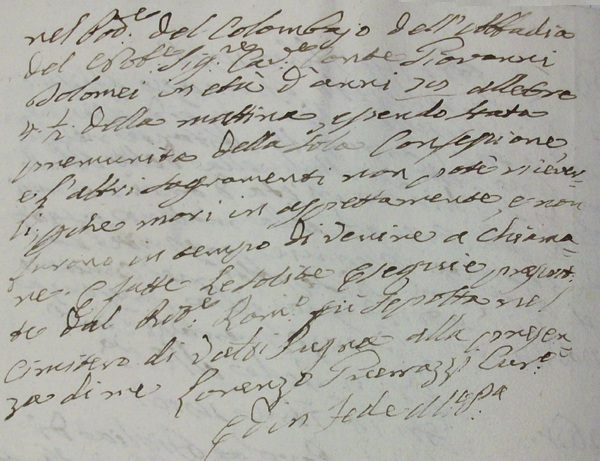 nel Pod.e del Colombajo dell'Abbadia
del Nob.e Sig.re Cav.re Conte Giovanni
Tolomei in età d'anni 75 all'ore
4 1/2 della mattina, essendo stata
premunita della sola Confessione,
e l'altri sagramenti non potè riever-
li, che morì in aspettamente, e non
furono in tempo di venire a chiama-
re e fatte le solite esequie
te dal Rit.e Rom.o fù sepolta nel
Cimitero di Val di Pugna alla presen-
za di me Lorenzo Curo.
E in fede M. pp.a